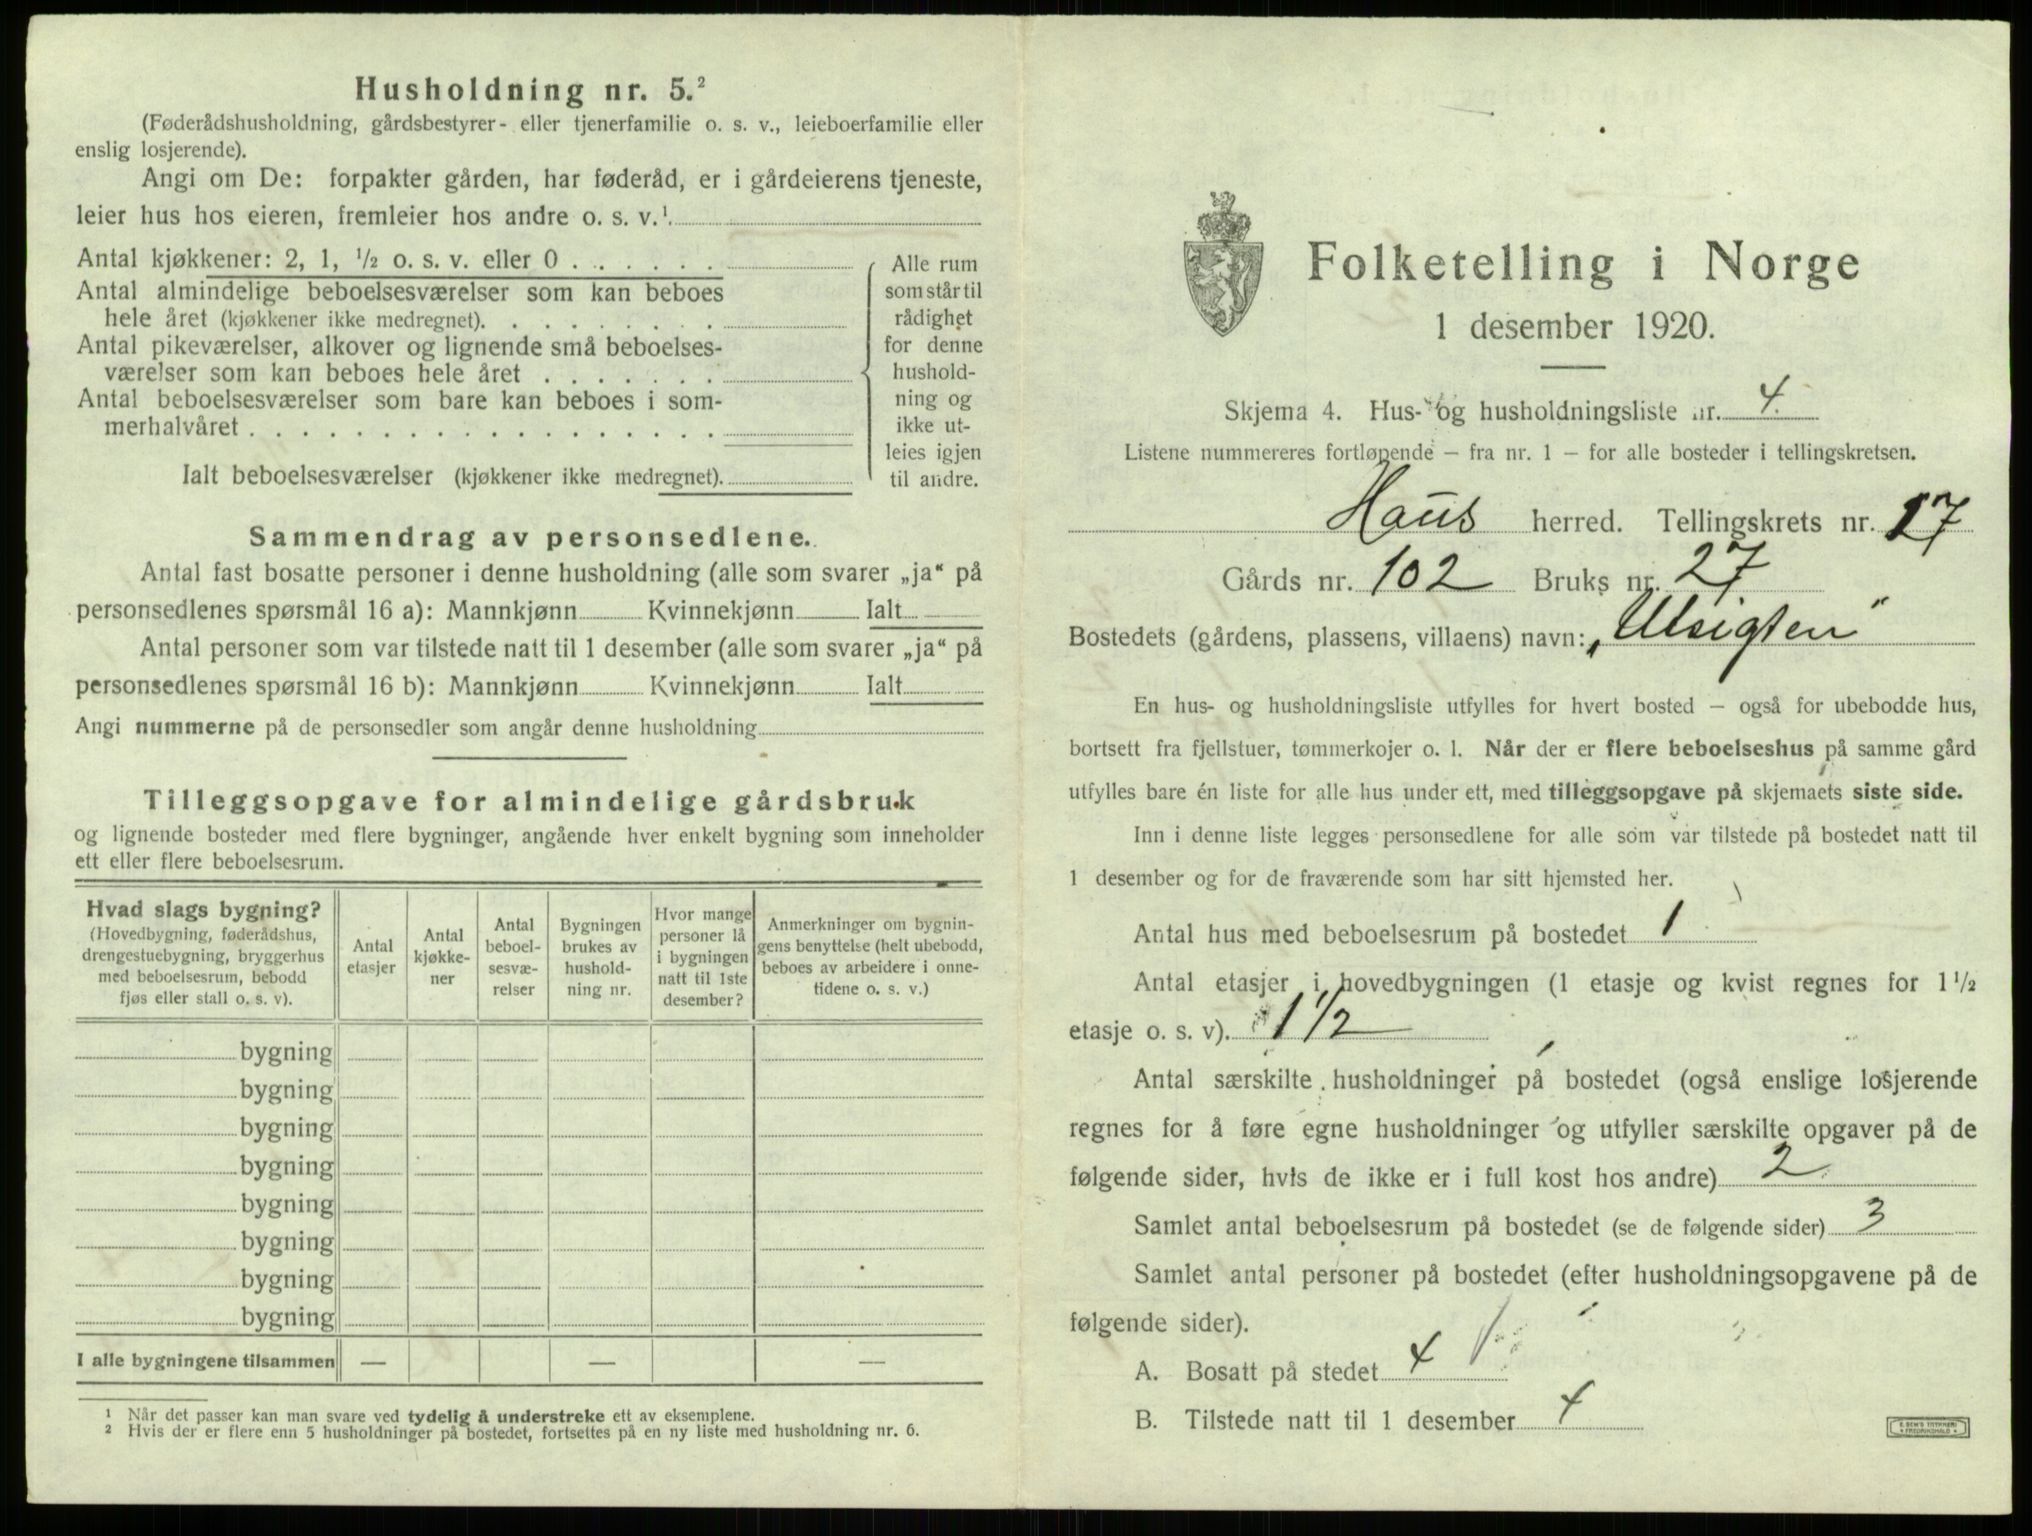 Husholdning nr. 5.²
(Føderådshusholdning, gårdsbestyrer- eller tjenerfamilie o. s. v., leieboerfamilie eller
enslig losjerende).
Angi om De: forpakter gården, har føderåd, er i gårdeierens tjeneste,
leier hus hos eieren, fremleier hos andre o. s. v.¹
Antal kjøkkener: 2, 1, ½ o. s. v. eller 0 . . . . . .
Antal almindelige beboelsesværelser som kan beboes
hele året (kjøkkener ikke medregnet). . . . . . . . .
Antal pikeværelser, alkover og lignende små beboelses-
værelser som kan beboes hele året . . . . . . .
Antal beboelsesværelser som bare kan beboes i som-
merhalvåret . . . . . . . . . . . . . . . . . .
Ialt beboelsesværelser (kjøkkener ikke medregnet).
Alle rum
som står til
rådighet
for denne
hushold-
ning og
ikke ut-
leies igjen
til andre.
Sammendrag av personsedlene.
Antal fast bosatte personer i denne husholdning (alle som svarer „ja“ på
personsedlenes spørsmål 16 a): Mannkjønn Kvinnekjønn Ialt
Antal personer som var tilstede natt til 1 desember (alle som svarer „ja“ på
personsedlenes spørsmål 16 b): Mannkjønn Kvinnekjønn Ialt
Angi nummerne på de personsedler som angår denne husholdning
Tilleggsopgave for almindelige gårdsbruk
og lignende bosteder med flere bygninger, angående hver enkelt bygning som inneholder
ett eller flere beboelsesrum.
Hvad slags bygning?
(Hovedbygning, føderådshus,
drengestuebygning, bryggerhus
med beboelsesrum, bebodd
fjøs eller stall o. s. v).
Antal
etasjer
Antal
kjøkke-
ner
Antal
beboel-
sesvæ-
relser
Bygningen
brukes av
hushold-
ning nr.
Hvor mange
personer lå
i bygningen
natt til 1ste
desember?
Anmerkninger om bygnin-
gens benyttelse (helt ubebodd,
beboes av arbeidere i onne-
tidene o. s. v.)
bygning
bygning
bygning
bygning
bygning
bygning
bygning
bygning
I alle bygningene tilsammen — — —
¹ Når det passer kan man svare ved tydelig å understreke ett av eksemplene.
² Hvis der er flere enn 5 husholdninger på bostedet, fortsettes på en ny liste med husholdning nr. 6.
Folketelling i Norge
1 desember 1920.
Skjema 4. Hus- og husholdningsliste nr. 4.
Listene nummereres fortløpende — fra nr. 1 — for alle bosteder i tellingskretsen.
Haus herred. Tellingskrets nr. 17
Gårds nr. 102 Bruks nr. 27
Bostedets (gårdens, plassens, villaens) navn: „Utsigten“
En hus- og husholdningsliste utfylles for hvert bosted — også for ubebodde hus,
bortsett fra fjellstuer, tømmerkojer o. l. Når der er flere beboelseshus på samme gård
utfylles bare én liste for alle hus under ett, med tilleggsopgave på skjemaets siste side.
Inn i denne liste legges personsedlene for alle som var tilstede på bostedet natt til
1 desember og for de fraværende som har sitt hjemsted her.
Antal hus med beboelsesrum på bostedet 1
Antal etasjer i hovedbygningen (1 etasje og kvist regnes for 1½
etasje o. s. v). 1½
Antal særskilte husholdninger på bostedet (også enslige losjerende
regnes for å føre egne husholdninger og utfyller særskilte opgaver på de
følgende sider, hvis de ikke er i full kost hos andre) 2
Samlet antal beboelsesrum på bostedet (se de følgende sider) 3
Samlet antal personer på bostedet (efter husholdningsopgavene på de
følgende sider).
A. Bosatt på stedet 4
B. Tilstede natt til 1 desember 4